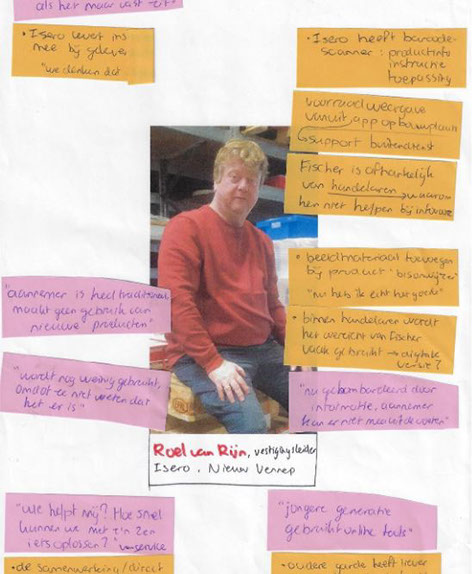 als het maar vast zit"
• Isero levert ins
mee bij gelever
"we denken dat
• Isero heeft barcode-
scanner: productinfo
instructie
toepassing
voorraad weergave
vanuit app op bouwplaats
support buitendienst
Fischer is afhankelijk
van handelaren, waarom
hen niet helpen bij
• beeldmateriaal toevoegen
bij product 'bijsnijder'
"nu heb ik echt het goede"
• binnen handelaren wordt
het overzicht van Fischer
vaak gebruikt → digitale
versie?
"aannemer is heel traditioneel
maakt geen gebruik van
nieuwe producten"
"wordt nog weinig gebruikt,
omdat ze niet weten dat
het er is"
"nu gebombardeerd door
informatie, aannemer
kan er niet mee uit de voeten"
Roel van Rijn, vestigingsleider
Isero, Nieuw Vennep
"Wie helpt mij? Hoe snel
kunnen we met z'n 2en
iets oplossen?" → service
"jongere generatie
gebruikt online tools"
• de samenwerking/direct
• oudere garde heeft liever